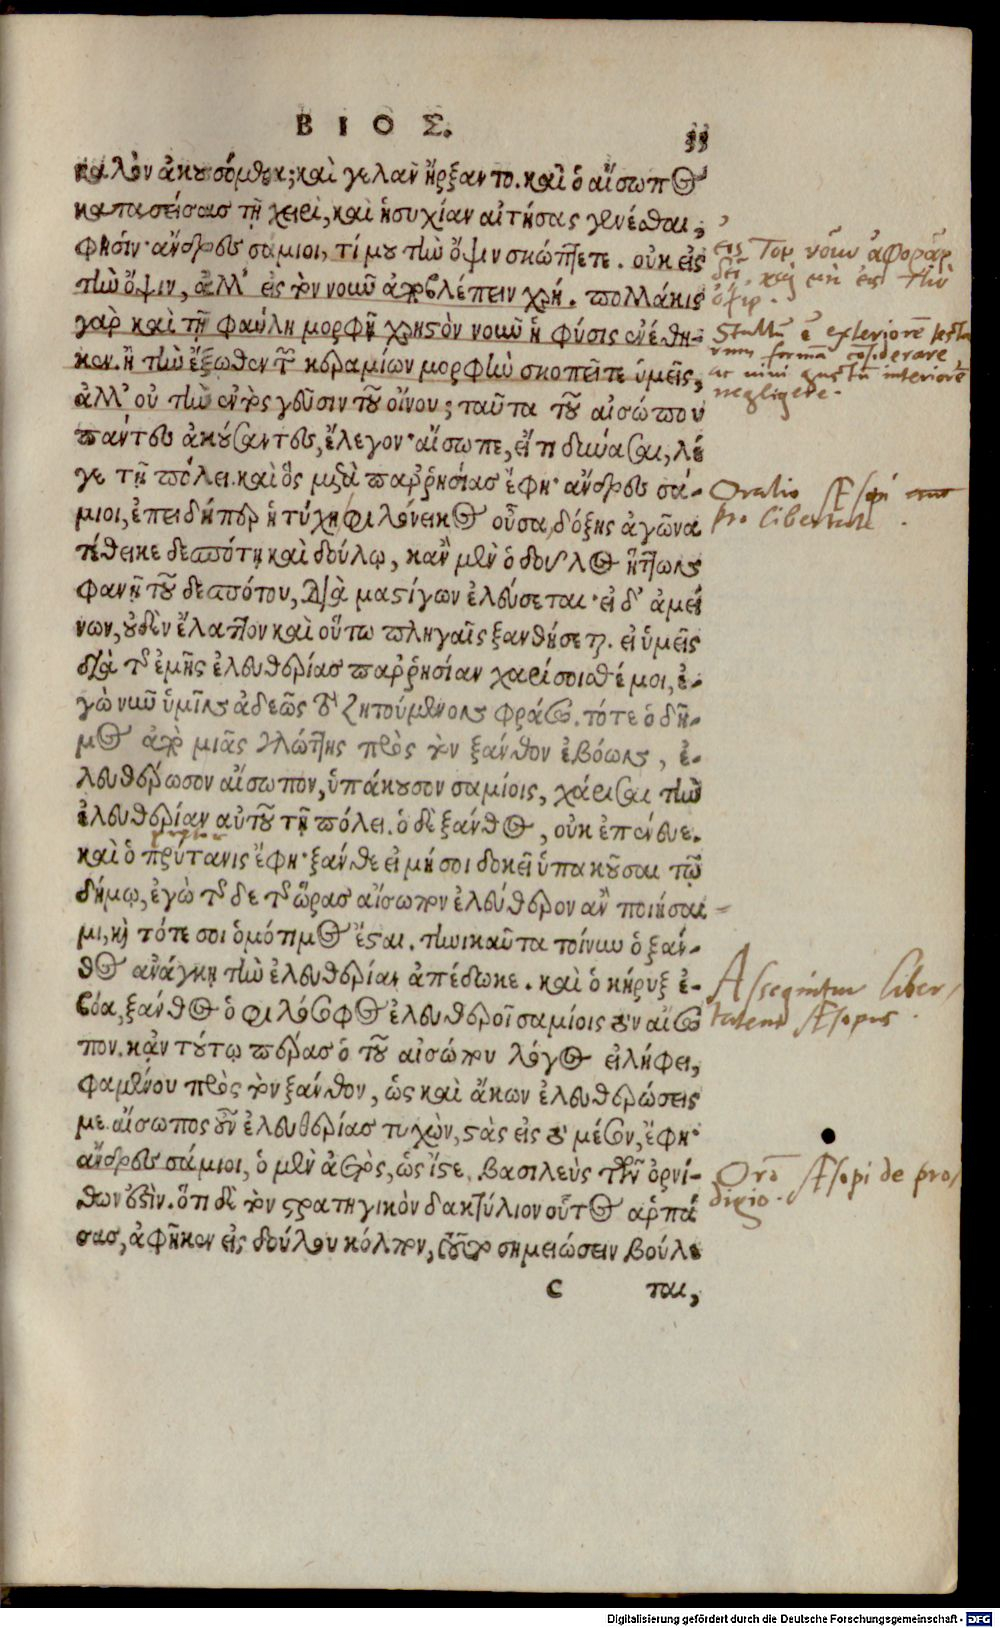 ΒΙΟΣ.
33
καλὸν ἀκουσόμεθα; καὶ γελᾶν ἤρξαντο. καὶ ὁ αἴσωπος
κατασείσας τῇ χειρὶ, καὶ ἡσυχίαν αἰτήσας γενέσθαι,
φησίν· ἄνδρες σάμιοι, τί μου τὴν ὄψιν σκώπτετε. οὐκ εἰς
τὴν ὄψιν, ἀλλ' εἰς τὸν νοῦν ἀποβλέπειν χρή. πολλάκις
γὰρ καὶ τῇ φαύλῃ μορφῇ χρηστὸν νοῦν ἡ φύσις ἐνέθη-
κεν. ἢ τὴν ἔξωθεν τῶν κεραμίων μορφὴν σκοπεῖτε ὑμεῖς,
ἀλλ' οὐ τὴν ἐντὸς γεῦσιν τοῦ οἴνου; ταῦτα τοῦ αἰσώπου
πάντες ἀκούσαντες, ἔλεγον· αἴσωπε, εἴ τι δύνασαι, λέ
γε τῇ πόλει. καὶ ὃς μετὰ παῤῥησίας ἔφη· ἄνδρες σά-
μιοι, ἐπειδήπερ ἡ τύχη φιλόνεικος οὖσα, δόξης ἀγῶνα
τέθεικε δεσπότῃ καὶ δούλῳ, κἂν μὲν ὁ δοῦλος ἥττων
φανῇ τοῦ δεσπότου, διὰ μαστίγων ἐλεύσεται· εἰ δ' ἀμεί
νων, οὐδὲν ἔλαττον καὶ οὕτω πληγαῖς ξανθήσεται. εἰ ὑμεῖς
διὰ τῆς ἐμῆς ἐλευθερίας παῤῥησίαν χαρίσοισθέ μοι, ἐ-
γὼ νῦν ὑμῖν ἀδεῶς τὸ ζητούμενον φράσω. τότε ὁ δῆ-
μος ἀπὸ μιᾶς γλώττης πρὸς τὸν ξάνθον ἐβόων, ἐ-
λευθέρωσον αἴσωπον, ὑπάκουσον σαμίοις, χάρισαι τὴν
ἐλευθερίαν αὐτοῦ τῇ πόλει. ὁ δὲ ξάνθος, οὐκ ἐπένευε.
καὶ ὁ πρύτανις ἔφη· ξάνθε εἰ μή σοι δοκεῖ ὑπακοῦσαι τῷ
δήμῳ, ἐγὼ τῆς δε τῆς ὥρας αἴσωπον ἐλεύθερον ἂν ποιήσαι
μι, καὶ τότε σοι ὁμότιμος ἔσται. τηνικαῦτα τοίνυν ὁ ξάν-
θος ἀνάγκῃ τὴν ἐλευθερίαν ἀπέδωκε. καὶ ὁ κήρυξ ἐ-
βόα, ξάνθος ὁ φιλόσοφος ἐλευθεροῖ σαμίοις τὸν αἴσω
πον. κἀν τούτῳ πέρας ὁ τοῦ αἰσώπου λόγος εἰλήφει,
φαμένου πρὸς τὸν ξάνθον, ὡς καὶ ἄκων ἐλευθερώσεις
με. αἴσωπος οὖν ἐλευθερίας τυχὼν, στὰς εἰς τὸ μέσον, ἔφη·
ἄνδρες σάμιοι, ὁ μὲν ἀετὸς, ὡς ἴστε, βασιλεὺς τῶν ὀρνί-
θων ἐστίν. ὅτι δὲ τὸν στρατηγικὸν δακτύλιον οὗτος ἁρπά
σας, ἀφῆκεν εἰς δούλου κόλπον, τοῦτο σημειώσειν βούλε
C ται,
εἰς τὸν νοῦν ἀφορᾶν
δεῖ, καὶ μὴ εἰς τὴν
ὄψιν.
Stultū ē exteriorē testa
rum formā cōsiderare,
ac vini gustū interiorē
negligere.
Oratio Æsopi
pro libertate.
Assequitur liber-
tatem Æsopus.
Orō Æsopi de pro-
digio.
Digitalisierung gefördert durch die Deutsche Forschungsgemeinschaft - DFG